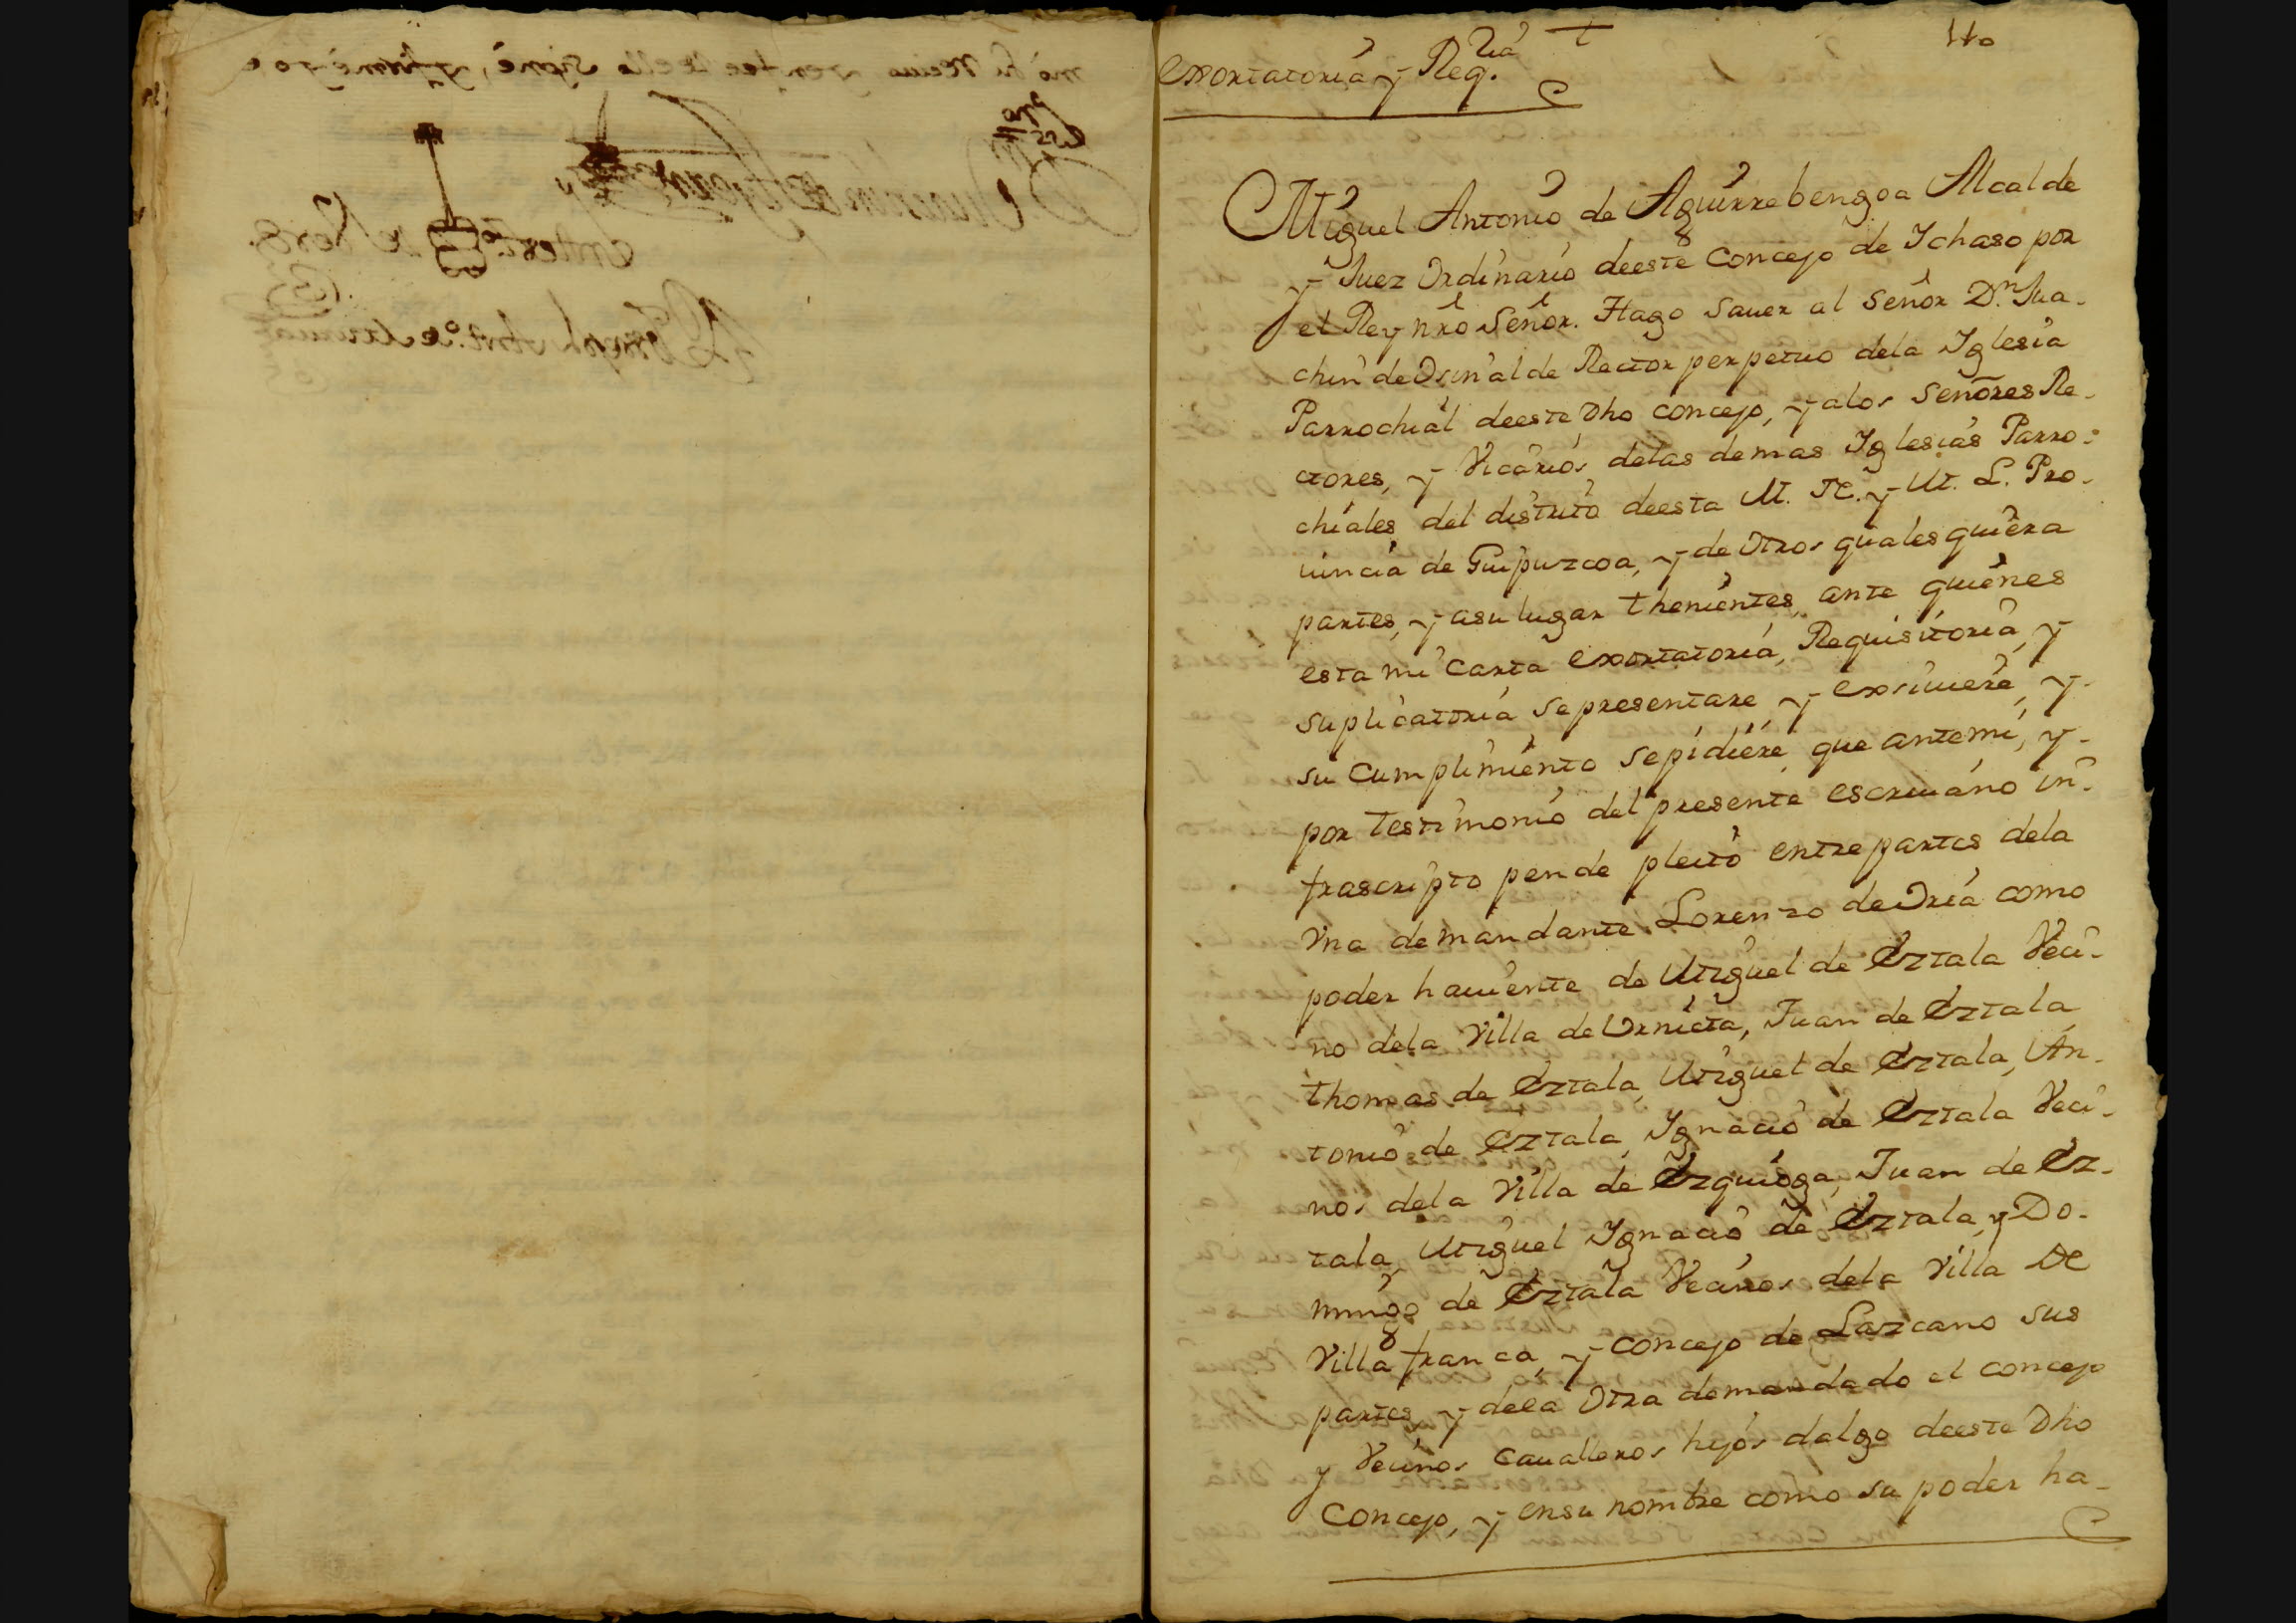 40
exortatoria y Req.ria
Miguel Antonio de Aguirrebengoa Alcalde
y Juez Ordinario deeste Concejo de Ichaso por
el Rey nro Señor. Hago sauer al señor Dn. Jua-
chin de Osinalde Rector perpetuo dela Iglesia
Parrochial deeste Dho concejo, y alos señores Re-
ctores, y Vicarios delas demas Iglesias Parro-
chiales del distrito deesta M. N. y M. L. Pro-
uincia de Guipuzcoa, y de otros quales quiera
partes, y asu lugar thenientes, ante quienes
esta mi carta exortatoria, Requisitoria, y
suplicatoria se presentare y exsiuere, y
su cumplimiento sepidiere, que antemi, y
por testimonio del presente escriuano in-
frascripto pende pleito entrepartes dela
Vna demandante Lorenzo de Oria como
poder hauiente de Miguel de Eztala Veci-
no dela Villa de Urnieta, Juan de Eztala,
Thomas de Eztala, Miguel de Eztala, An-
tonio de Eztala, Ignacio de Eztala Veci-
nos dela Villa de Ezquioga, Juan de Ez-
tala, Miguel Ignacio de Eztala, y Do-
mingo de Eztala Vecinos dela Villa De
Villa franca, y Concejo de Lazcano sus
partes, y dela Otra demandado el concejo
y Vecinos Caualleros hijos dalgo deeste Dho
Concejo, y ensu nombre como su poder ha-